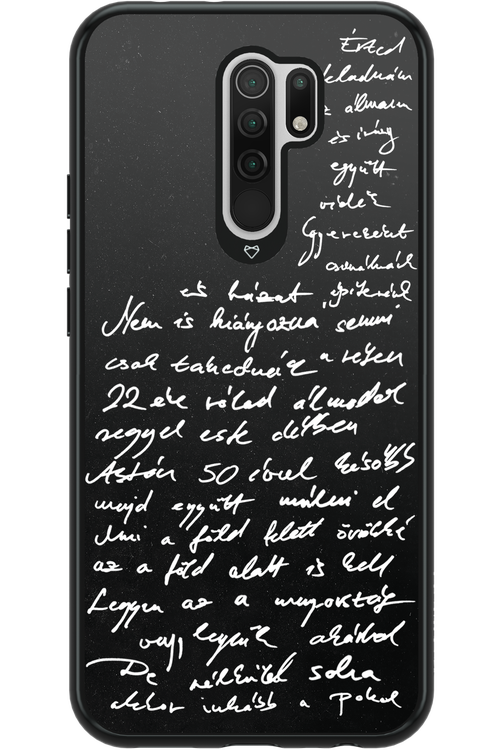 Érted
feladnám
az álmaim
és így
együtt
vidék
Gyerekeket
csinálnánk
és házat építenénk
Nem is hiányozna semmi
csak takednák a részem
22 éve rólad álmodok
reggel este délben
Aztán 50 évvel később
majd együtt múlni el
Ami a föld felett örökké
az a föld alatt is kell
Legyen az a mennyország
vagy legyünk akárhol
De nélküled soha
akkor inkább a pokol